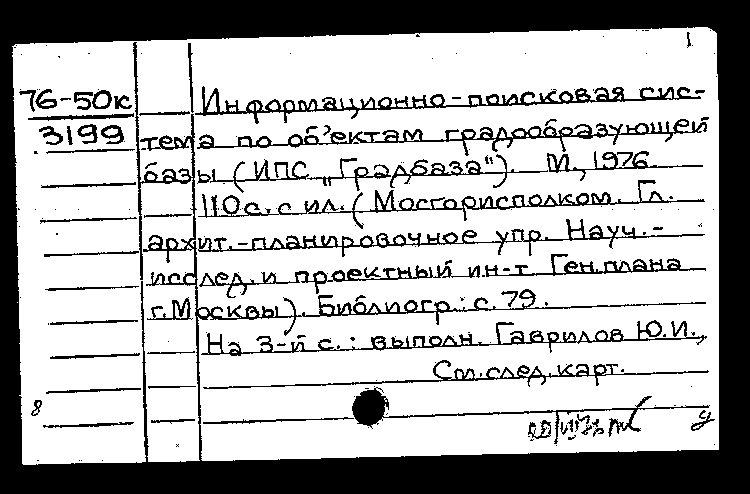 1
76-50к Информационно-поисковая сис-
3199 тема по об'ектам градообразующей
базы (ИПС „Градбаза"). М., 1976
110с. с ил. (Мосгорисполком. Гл.
архит.-планировочное упр. Науч.-
исслед. и проектный ин-т Ген.плана
г. Москвы). Библиогр.: с. 79.
На 3-й с.: выполн. Гаврилов Ю.И.,
См. след. карт.
8